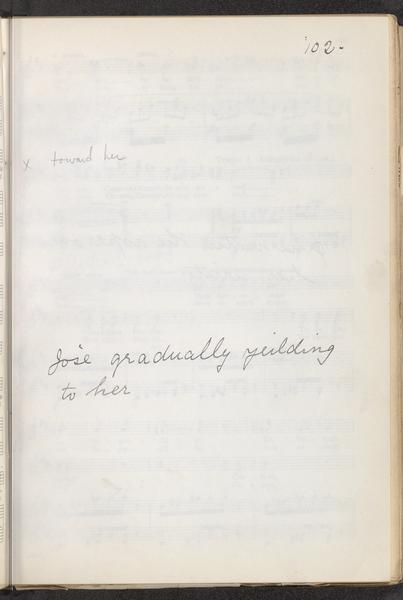 102-
x toward her
José gradually yeilding
to her